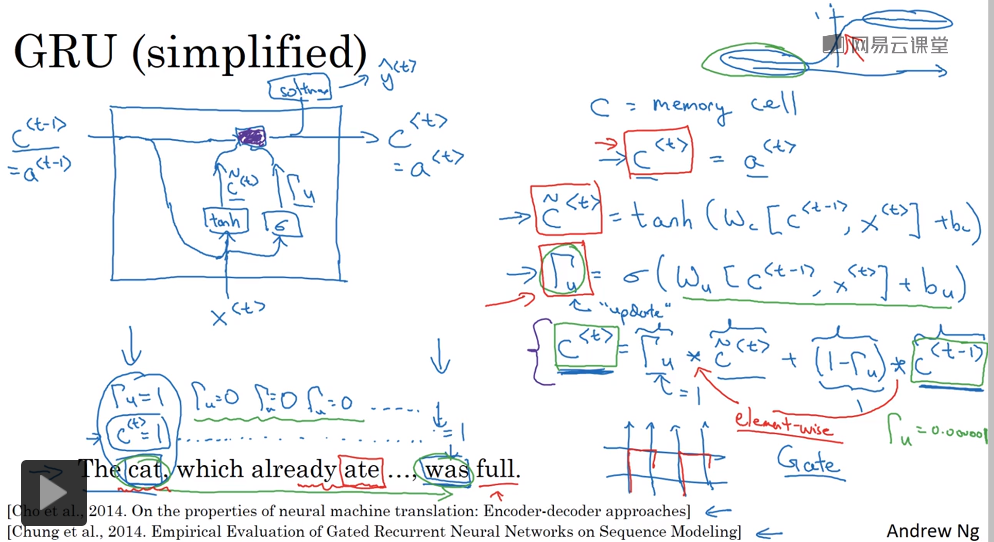 GRU (simplified)
网易云课堂
softmax
ŷ<t>
C = memory cell
C<t-1>
= a<t-1>
C<t>
= a<t>
C̃<t>
Γu
tanh
σ
x<t>
C<t> = a<t>
C̃<t> = tanh (Wc [C<t-1>, x<t>] + bc)
Γu = σ (Wu [C<t-1>, x<t>] + bu)
"update"
C<t> = Γu * C̃<t> + (1-Γu) * C<t-1>
= 1
element-wise
Γu = 0.000001
Gate
Γu=1 Γu=0 Γu=0 Γu=0 ......
C<t>=1 ............ =1
The cat, which already ate ..., was full.
[Cho et al., 2014. On the properties of neural machine translation: Encoder-decoder approaches]
[Chung et al., 2014. Empirical Evaluation of Gated Recurrent Neural Networks on Sequence Modeling]
Andrew Ng